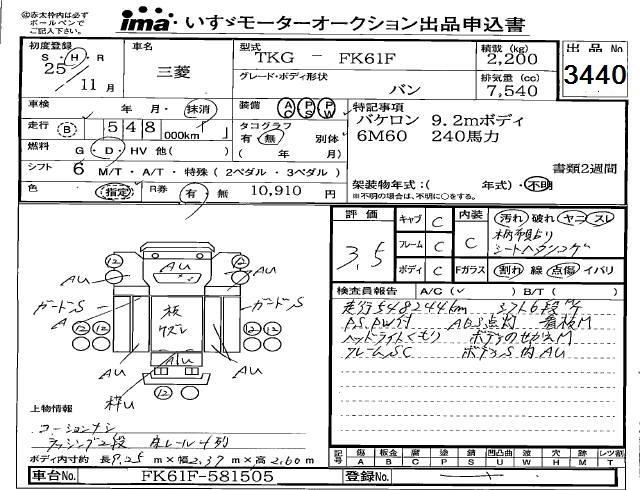 ◎赤太枠内は必ず
ボールペンで
ご記入下さい。
ima いすゞモーターオークション出品申込書
初度登録
S・H・R
25
11月
車名
三菱
型式
TKG － FK61F
グレード・ボディ形状
バン
積載 (kg)
2,200
排気量 (cc)
7,540
出品No.
3440
車検 年・月・抹消
装備 AC PS PW
走行 B 548 000km
タコグラフ
有・無 別体
( 年 月)
燃料 G・D・HV 他( )
シフト 6 M/T・A/T・特殊 (2ペダル・3ペダル)
色 指定 R券 有・無 10,910 円
特記事項
バケロン 9.2mボディ
6M60 240馬力
書類2週間
架装物年式:( 年式)・不明
※不明の場合は、不明に○をする。
評価
3.5
キャブ C
フレーム C
ボディ C
内装
C
Fガラス
汚れ 破れ ヤニ スレ
割れ 線 点傷 イバリ
検査員報告 A/C(✓ ) B/T( )
走行548244km
P.S, PW付 ABS点灯 看板M
ヘッドライトくもり
フレームSC ボデーS 内AU
12 12
AU AU AU
ガードンS ガードンS
A
板
ケズレ
12 12
AU AU AU
枠U
12
上物情報
コーションナシ
ラッシング2段 床レール4列
ボディ内寸約 長9.25 m×幅2.37 m×高2.60m
車台No. FK61F-581505
登録No.
記号
傷 板金 腐 塗 錆 凹凸曲 波 穴 跡 レツ割
A B C P S U W H M T